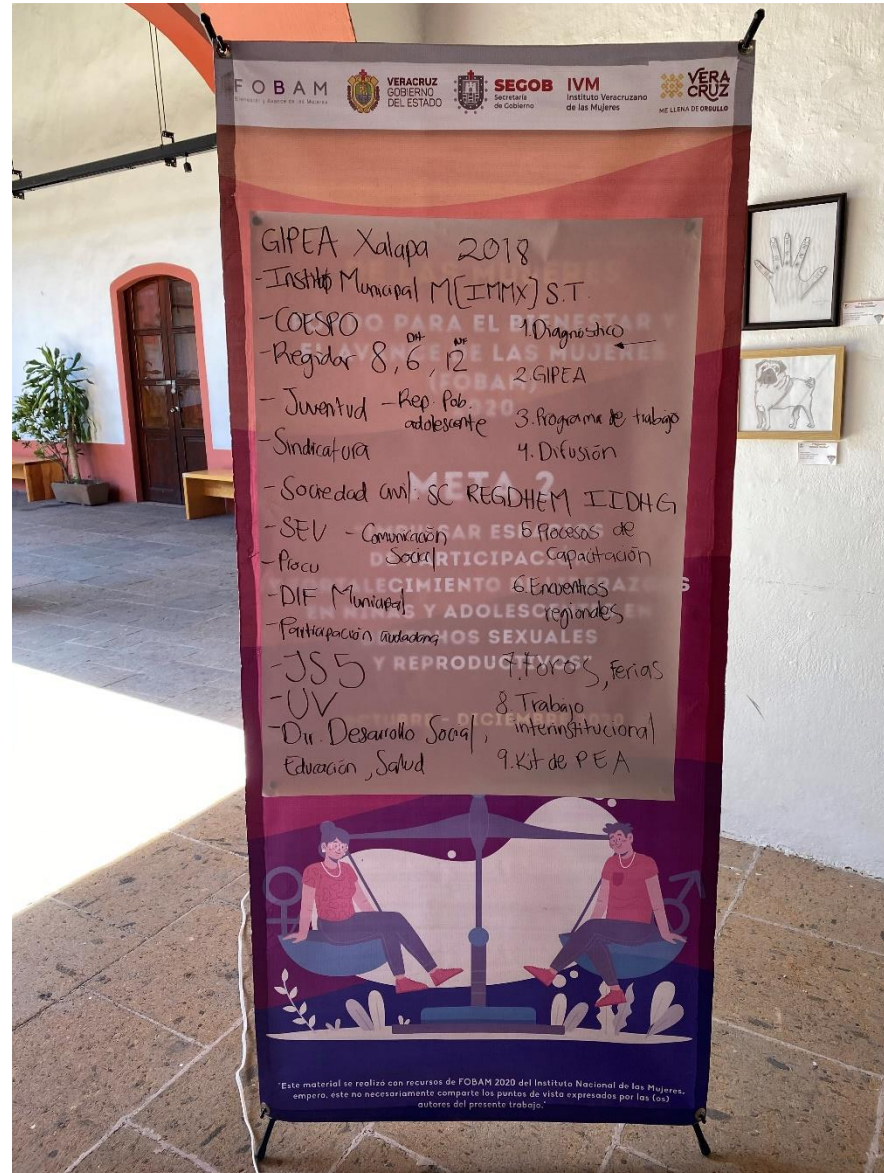 FOBAM
VERACRUZ
GOBIERNO
DEL ESTADO
SEGOB
Secretaría
de Gobierno
IVM
Instituto Veracruzano
de las Mujeres
VERA
CRUZ
ME LLENA DE ORGULLO
GIPEA Xalapa 2018
DE LAS MUJERES
- Instituto Municipal M[IMMX] S.T.
DO PARA EL BIENESTAR Y
- COESPO
- Regidor 8, 6, 12
DH
AVANCE DE LAS MUJERES
(FOBAM)
2020
- Juventud - Rep. Pob. adolescente
- Sindicatura
META 2
- Sociedad civil: SC REGDHEM IIDHG
- SEV - Comunicación Social
- Procu
- DIF Municipal
- Participación ciudadana
- JS5
- UV
- Dir. Desarrollo Social,
Educación, Salud
1. Diagnóstico
2. GIPEA
3. Programa de trabajo
4. Difusión
5. Procesos de
Capacitación
6. Encuentros
regionales
7. Foros, ferias
8. Trabajo
interinstitucional
9. Kit de PEA
SAR ES
PARTICIPAC
LECIMIENTO
Y ADOLESC
HOS SEXUALES
Y REPRODUCTIVOS"
OCTUBRE - DICIEMBRE 2020
"Este material se realizó con recursos de FOBAM 2020 del Instituto Nacional de las Mujeres,
empero, éste no necesariamente comparte los puntos de vista expresados por las (os)
autores del presente trabajo."